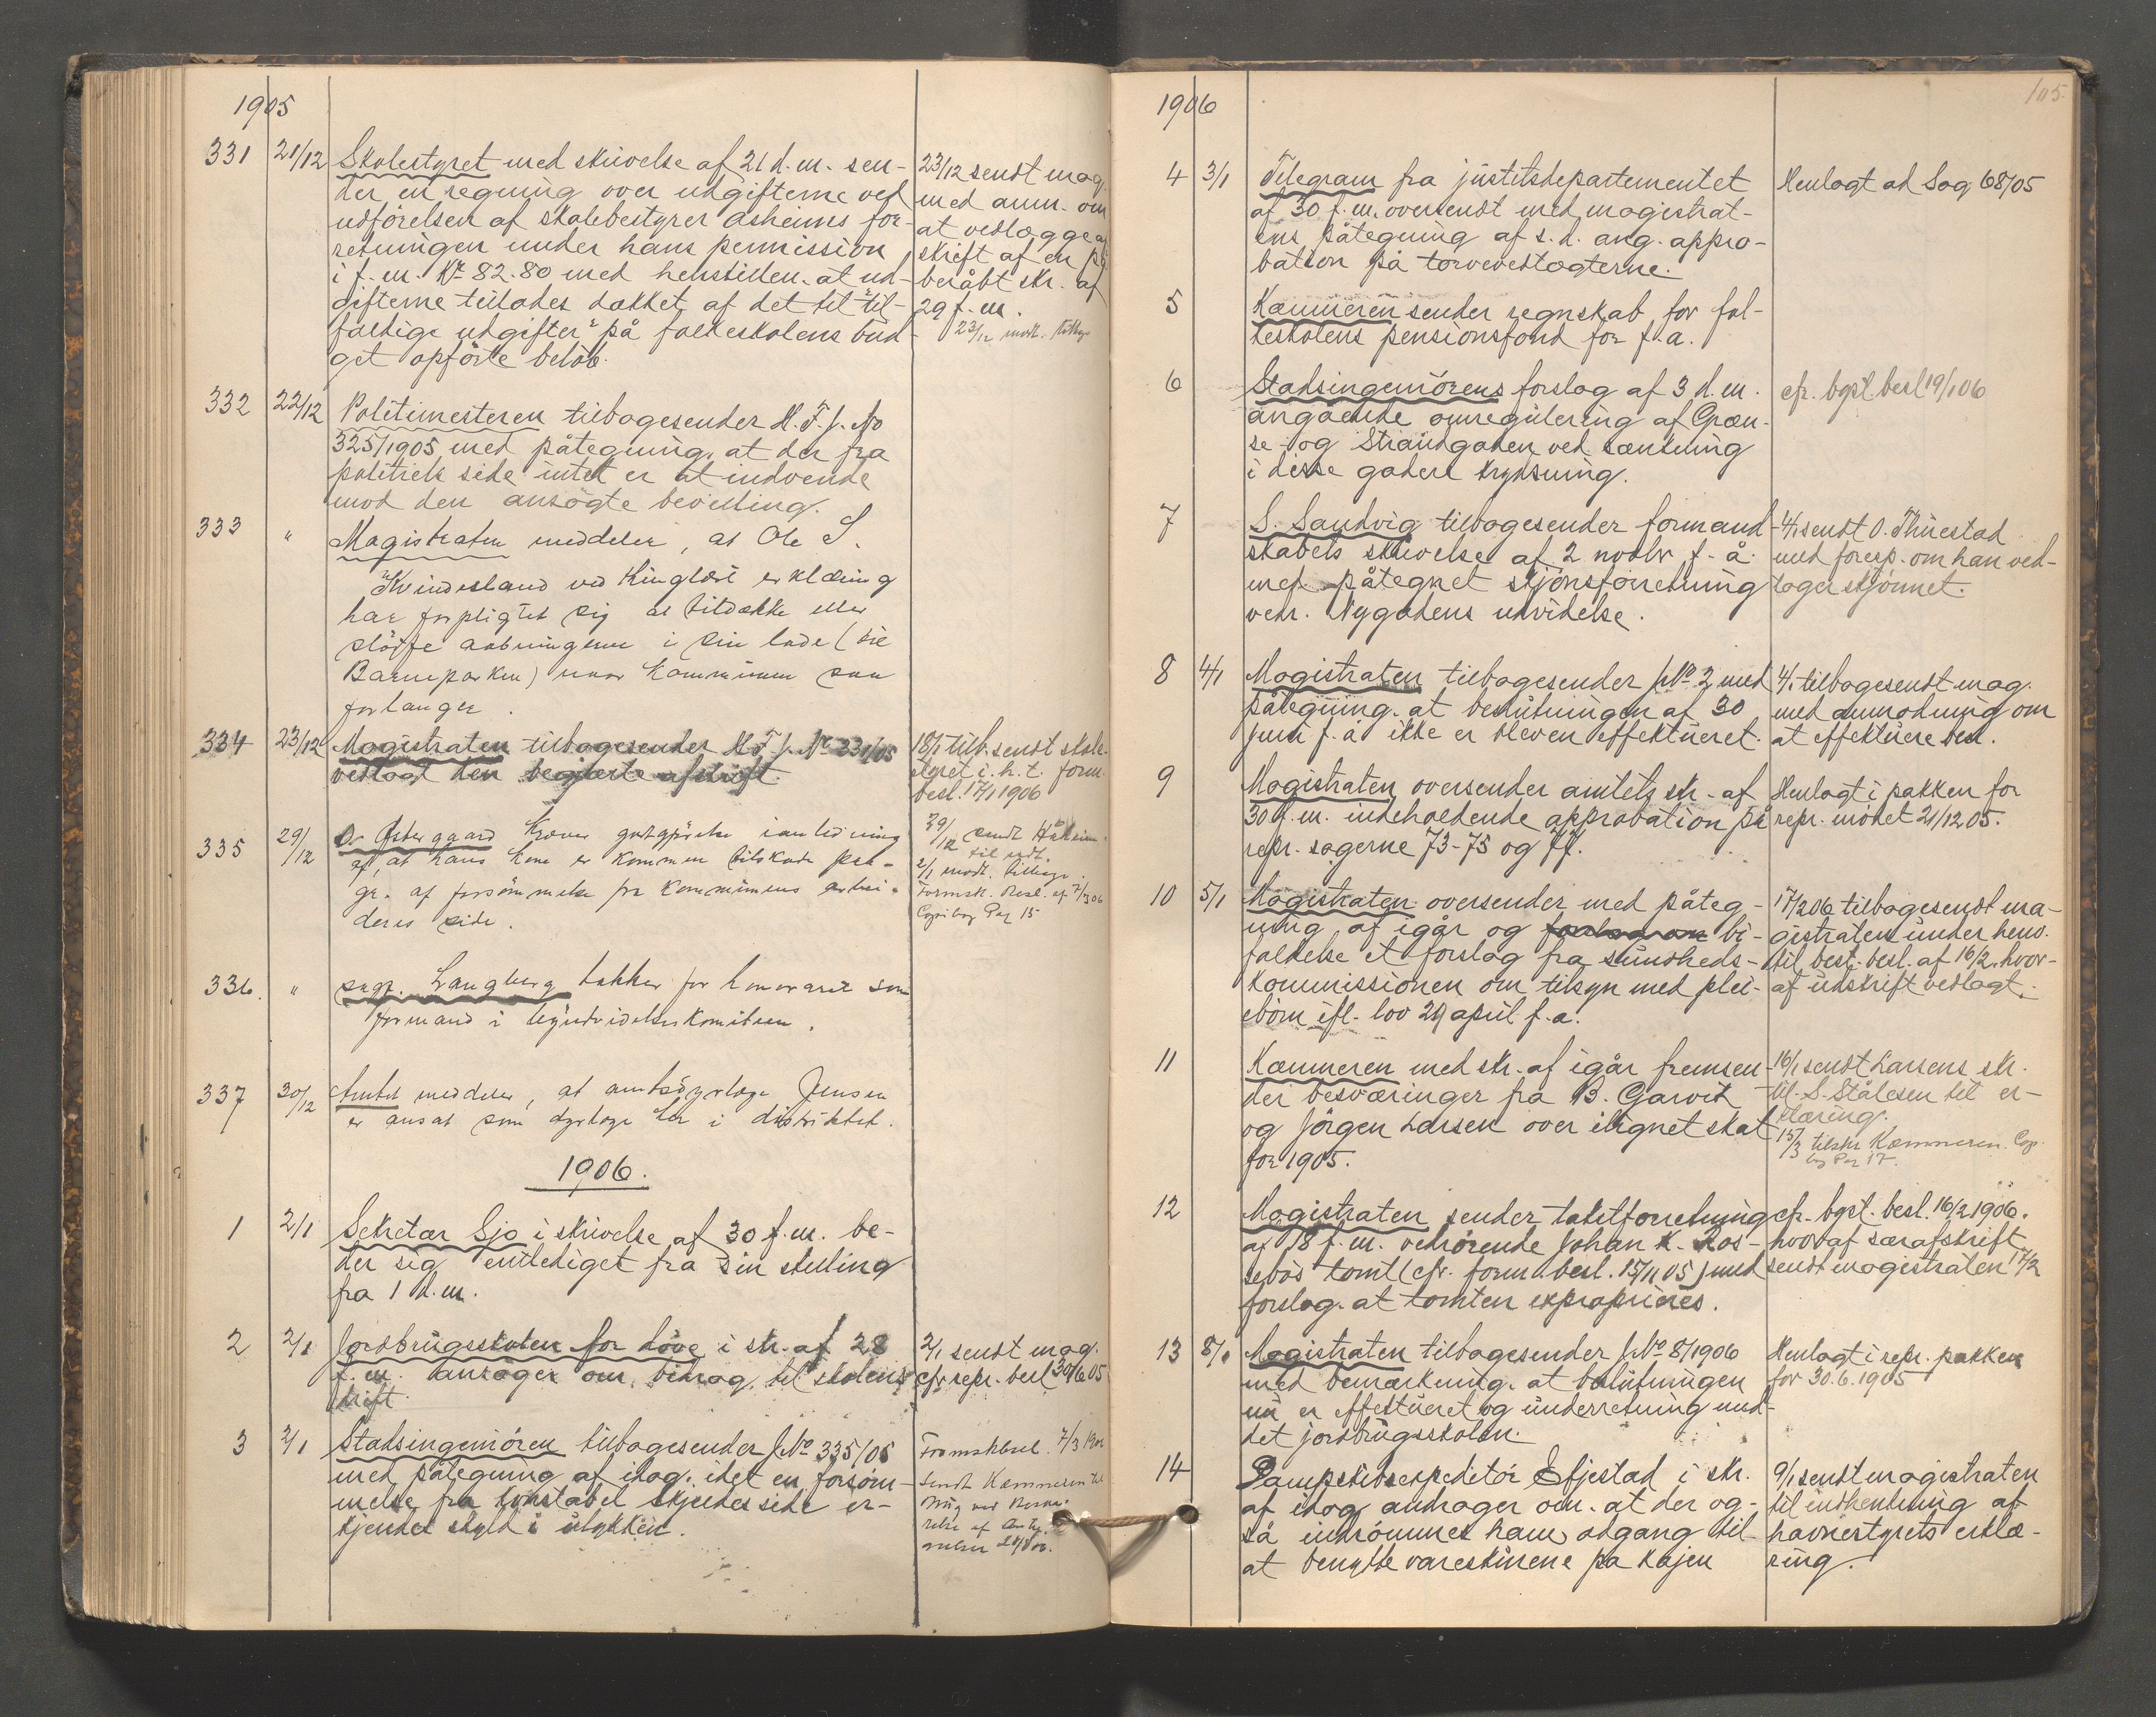 1905
331 21/12 Skolestyret med skrivelse af 21 d.m. sen-
der en regning over udgifterne ved
udförelsen af skolebestyrer Asheims for-
retninger under hans permission
i f.m. Kr 82.80 med henstillen at ud-
gifterne tillades dækket af det til "til-
fældige udgifter" på folkeskolens bud-
get opförte belöb.
23/12 sendt mag.
med anm. om
at vedlægge af
skrift af en på
beråbt skr. af
29 f.m.
23/12 modt.
332 22/12 Politimesteren tilbagesender H.F.J. No
325/1905 med påtegning, at der fra
politiets side intet er at indvende
mod den ansögte bevilling.
333 " Magistraten meddeler, at Ole S.
Kvindesland ved thinglæst erklæring
har forpligtet sig at tildække eller
slöife aabningerne i sin lade (
Barneparken) naar kommunen saa
forlanger.
334 23/12 Magistraten tilbagesender H.F.J. No 331/05
vedlagt den begjærte afskrift.
18/1 tilb. sendt skole-
styret i.h.t. form.
besl. 17/1 1906
335 29/12 O. Östergaard kræver godtgjörelse i anledning
af, at hans kone er kommen tilskade paa
gr. af forsömmelse fra kommunens arbei-
deres side.
29/12 sendt
2/1 modt. tilbage.
Formsk. Besl. af 7/3 06
Copibog Pag 15
336. " sagf. Langberg takker for honoraret som
formand i byudvidelseskomiteen.
337 30/12 Amtet meddeler, at amtsdyrlæge Jensen
er ansat som dyrlæge her i distriktet.
1906.
1 2/1 Sekretær Sjo i skrivelse af 30 f.m. be-
der sig entlediget fra sin stilling
fra 1 d.m.
2 2/1 Jordbrugsskolen for döve i skr. af 28
f.m. ansöger om bidrag til skolens
drift.
2/1 sendt mag.
cfr repr. besl 30/6 05
3 2/1 Stadsingeniören tilbagesender J.No 335/05
med påtegning af idag, idet en forsöm-
melse fra konstabel Skjeldes side er-
kjendes skyld i ulykken.
Formskbesl. 7/3 1906
sendt Kæmneren til
1906
105.
4 3/1 Telegram fra justitsdepartementet
af 30 f.m. oversendt med magistrat-
ens påtegning af s.d. ang. appro-
bation på torvevedtægterne.
Henlagt ad Sag 68/05
5 Kæmneren sender regnskab for fol-
keskolens pensionsfond for f.a.
6 Stadsingeniörens forslag af 3 d.m.
angående omregulering af Græn-
se- og Strandgaden ved sænkning
i disse gaders krydsning.
cfr. bgst. besl 19/1 06
7 S. Sandvig tilbagesender formand-
skabets skrivelse af 2 novbr f.å.
med påtegnet skjönsforretning
vedr. Nygadens udvidelse.
4/1 sendt O. Thuestad
med foresp. om han ved-
tager skjönnet.
8 4/1 Magistraten tilbagesender J.No 2 med
påtegning, at beslutningen af 30
juni f.å ikke er bleven effektueret.
4/1 tilbagesendt mag.
med anmodning om
at effektuere besl.
9 Magistraten oversender amtets skr. af
30 f.m. indeholdende approbation på
repr. sagerne 73-75 og 77.
Henlagt i pakken for
repr. mödet 21/12 05.
10 5/1 Magistraten oversender med påteg-
ning af igår og bi-
faldelse et forslag fra sundheds-
kommissionen om tilsyn med plei-
ebörn ifl. lov 29 april f.a.
17/2 06 tilbagesendt ma-
gistraten under henv.
til best. besl. af 16/2, hvor-
af udskrift vedlagt.
11 Kæmneren med skr. af igår fremsen-
der besværinger fra B. Garvik
og Jörgen Larsen over ilignet skat
for 1905.
16/1 sendt Larsens skr.
til S. Stålesen til er-
klæring.
15/3 tilskr Kæmneren. Cop.
bog Pag 17.
12 Magistraten sender takstforretning
af 18 f.m. vedrörende Johan K. Ros-
sebös tomt (cfr. form. besl. 15/11 05) med
forslag, at tomten exproprieres.
cfr. bgst. besl. 16/2 1906.
hvoraf særafskrift
sendt magistraten 17/2
13 8/1 Magistraten tilbagesender J.No 8/1906
med bemærkning, at beslutningen
nu er effektueret og underretning med-
delt jordbrugsskolen.
Henlagt i repr. pakken
for 30.6.1905
14 Dampskibsexpeditör Efjestad i skr.
af idag andrager om, at der og-
så indrömmes ham adgang til
at benytte vareskurene på kajen
9/1 sendt magistraten
til indhentning af
havnestyrets erklæ-
ring.